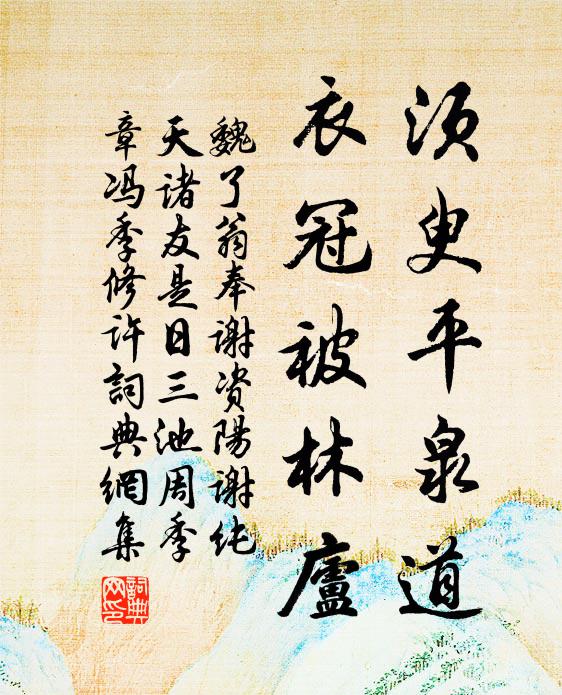 须臾平泉道
衣冠被林廬
魏了翁奉谢资陽谢纯
天诸友是日三池周季
章冯季修许詞典網集
詞典